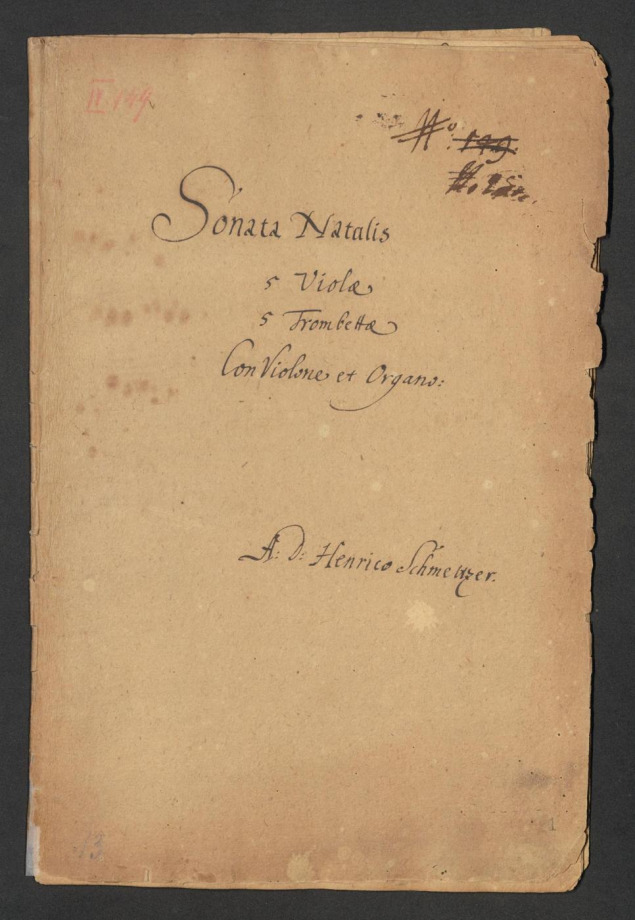 II 149
No. 149.
Sonata Natalis
5 Violæ
5 Trombettæ
Con Violone et Organo:
A: D: Henrico Schmeltzer.
1
13